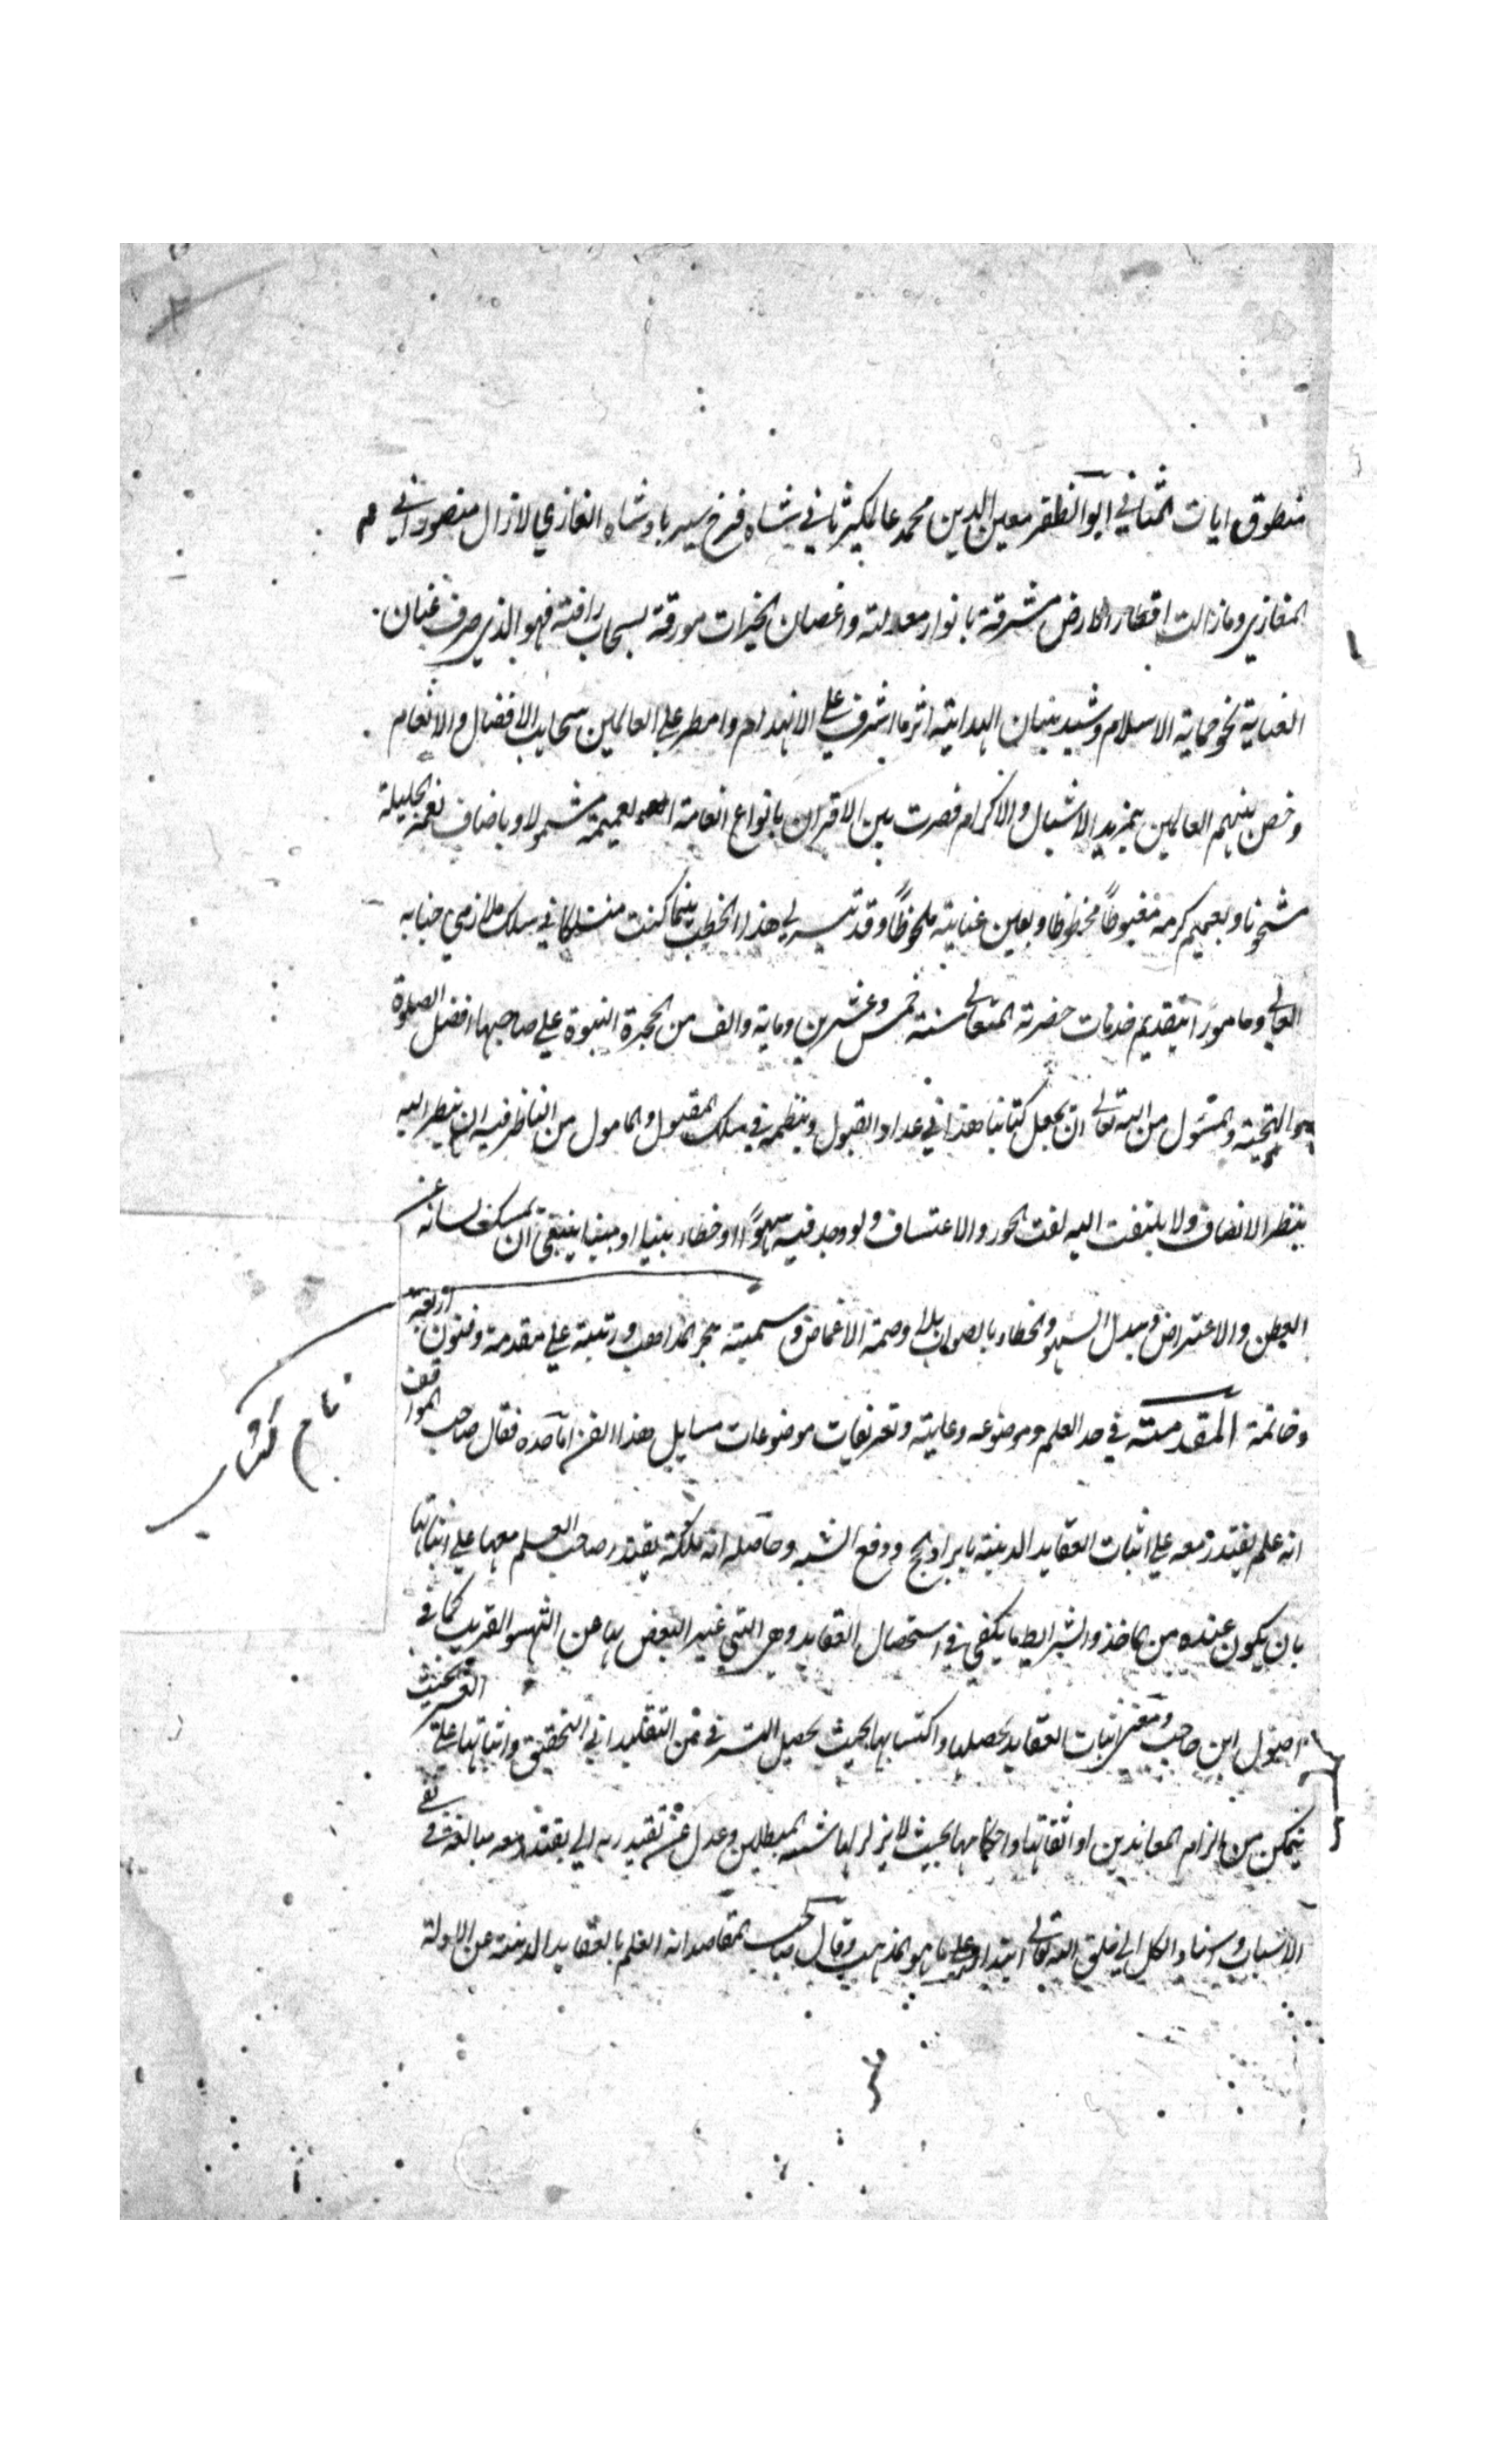 منطوق ايات المثاني ابو المظفر معين الدين محمد عالمكير ثاني شاه فرخ سير بادشاه الغازي لازال منصورا في
المغازي ومازالت اقطار الارض مشرقة بانوار معدلته واغصان الخيرات مورقة بسحاب رافته فهو الذي صرف عنان
العناية نحو حماية الاسلام وشيد بنيان الهداية اثر ما اشرف علي الانهدام وامطر علي العالمين سحايب الافضال والانعام
وخص بينهم العالمين بمزيد الاشبال والاكرام فصرت بين الاقران بانواع انعامه العميمة مشمولا وباضاف نعمه الجليلة
مشحونا وبعميم كرمه مغبوطاً محظوظا وبعين عنايته ملحوظاً وقد تيسر لي هذا الخطب بينما كنت منسلكا في سلك ملازمي جنابه
العالي ومامورا بتقديم خدمات حضرته المتعالي سنة خمس وعشرين وماية والف من الهجرة النبوة علي صاحبها افضل الصلوة
والتحية والمسئول من الله تعالي ان يجعل كتابنا هذا في عداد القبول وينظمه في سلك المقبول والمامول من الناظر فيه ان ينظر اليه
بنظر الانصاف ولا يلتفت اليه لفت الجور والاعتساف ولو وجد فيه سهوًا او خطاء بنيا او مبنيا ينبغي ان يمسك لسانه عن
الطعن والاعتراض ويبدل السهو والخطاء بالصواب بلا وصمة الاغماض وسميته بحر المذاهب ورتبته علي مقدمة وفنون اربعة
وخاتمة المقدمة في حد العلم وموضوعه وغايته وتعريفات موضوعات مسايل هذا الفن اما حده فقال صاحب المواقف
نام كتاب
انه علم يقتدر معه علي اثبات العقايد الدينية بايراد الحجج ودفع الشبه وحاصله انه ملكة يقتدر صاحب العلم معها علي اثباتها
بان يكون عنده من الماخذ والشرايط ما يكفي في استحصال العقايد وهي التي غير البعض بها عن التهيو القريب كما في
اصول ابن حاجب ومعني اثبات العقايد تحصيلها واكتسابها بحيث يحصل الترقي من التقليد الي التحقيق واثباتها علي الغير بحيث
يتمكن من الزام المعاندين او اتقانها واحكامها بحيث لا يزلزلها شبه المبطلين وعدل عن يقتدر به الي يقتدر معه مبالغة في نفي
الاسباب واسناد الكل الي خلق الله تعالي ابتداء علي ما هو المذهب وقال صاحب المقاصد انه العلم بالعقايد الدينية عن الادلة